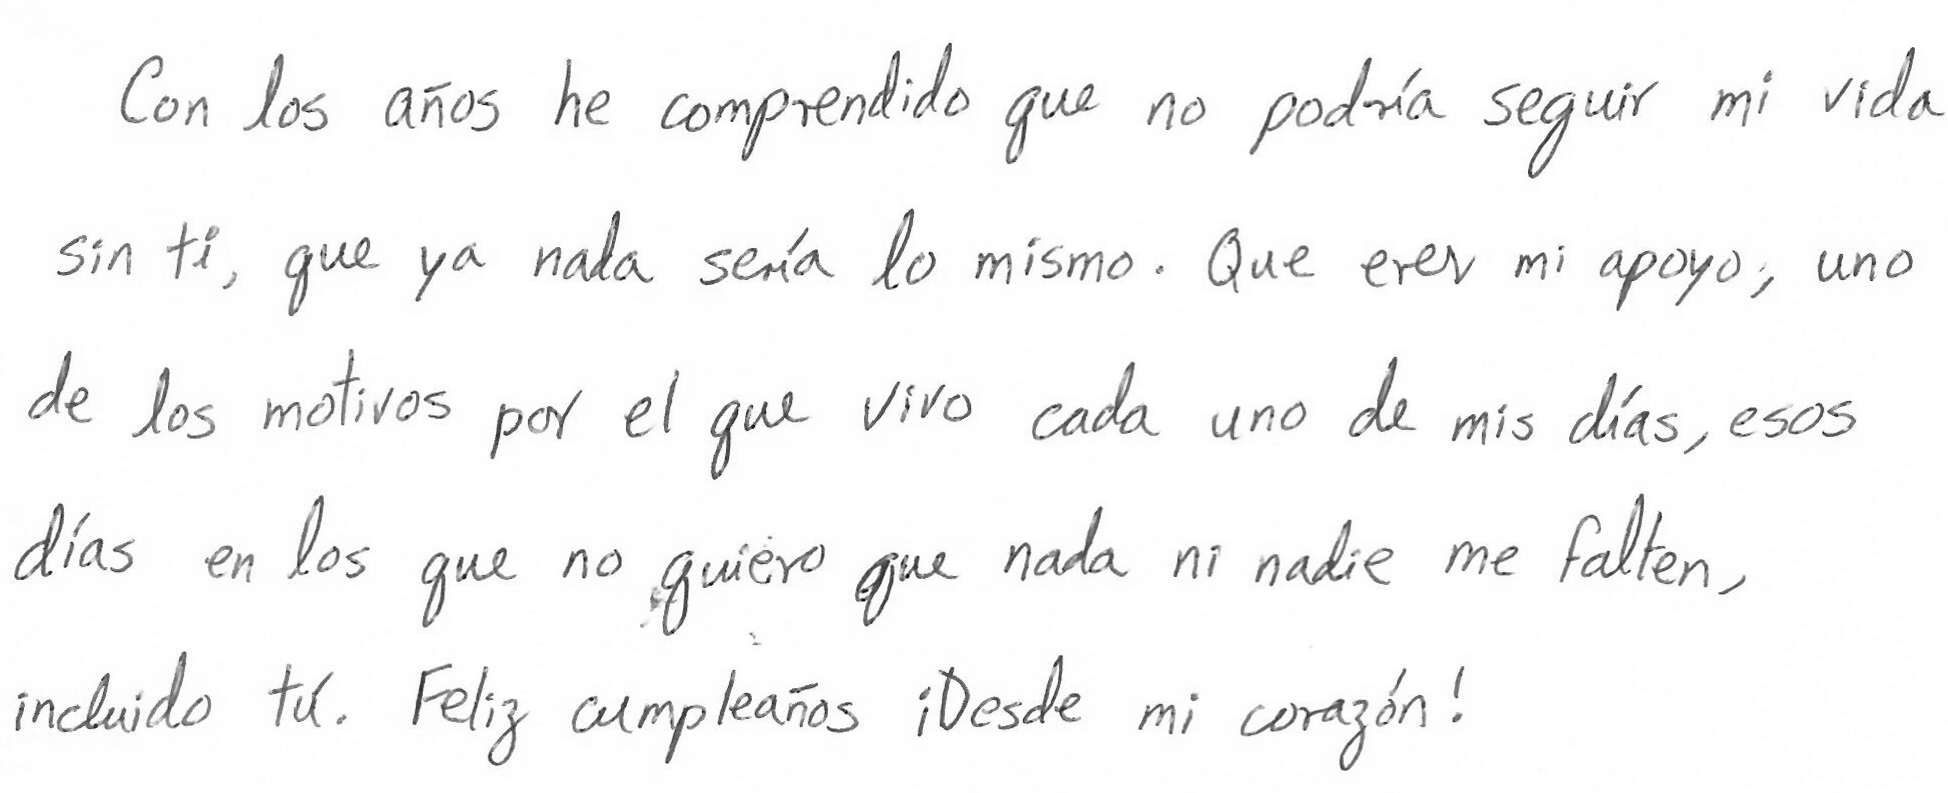 Con los años he comprendido que no podría seguir mi vida
sin ti, que ya nada sería lo mismo. Que eres mi apoyo, uno
de los motivos por el que vivo cada uno de mis días, esos
días en los que no quiero que nada ni nadie me falten,
incluido tú. Feliz cumpleaños ¡Desde mi corazón!